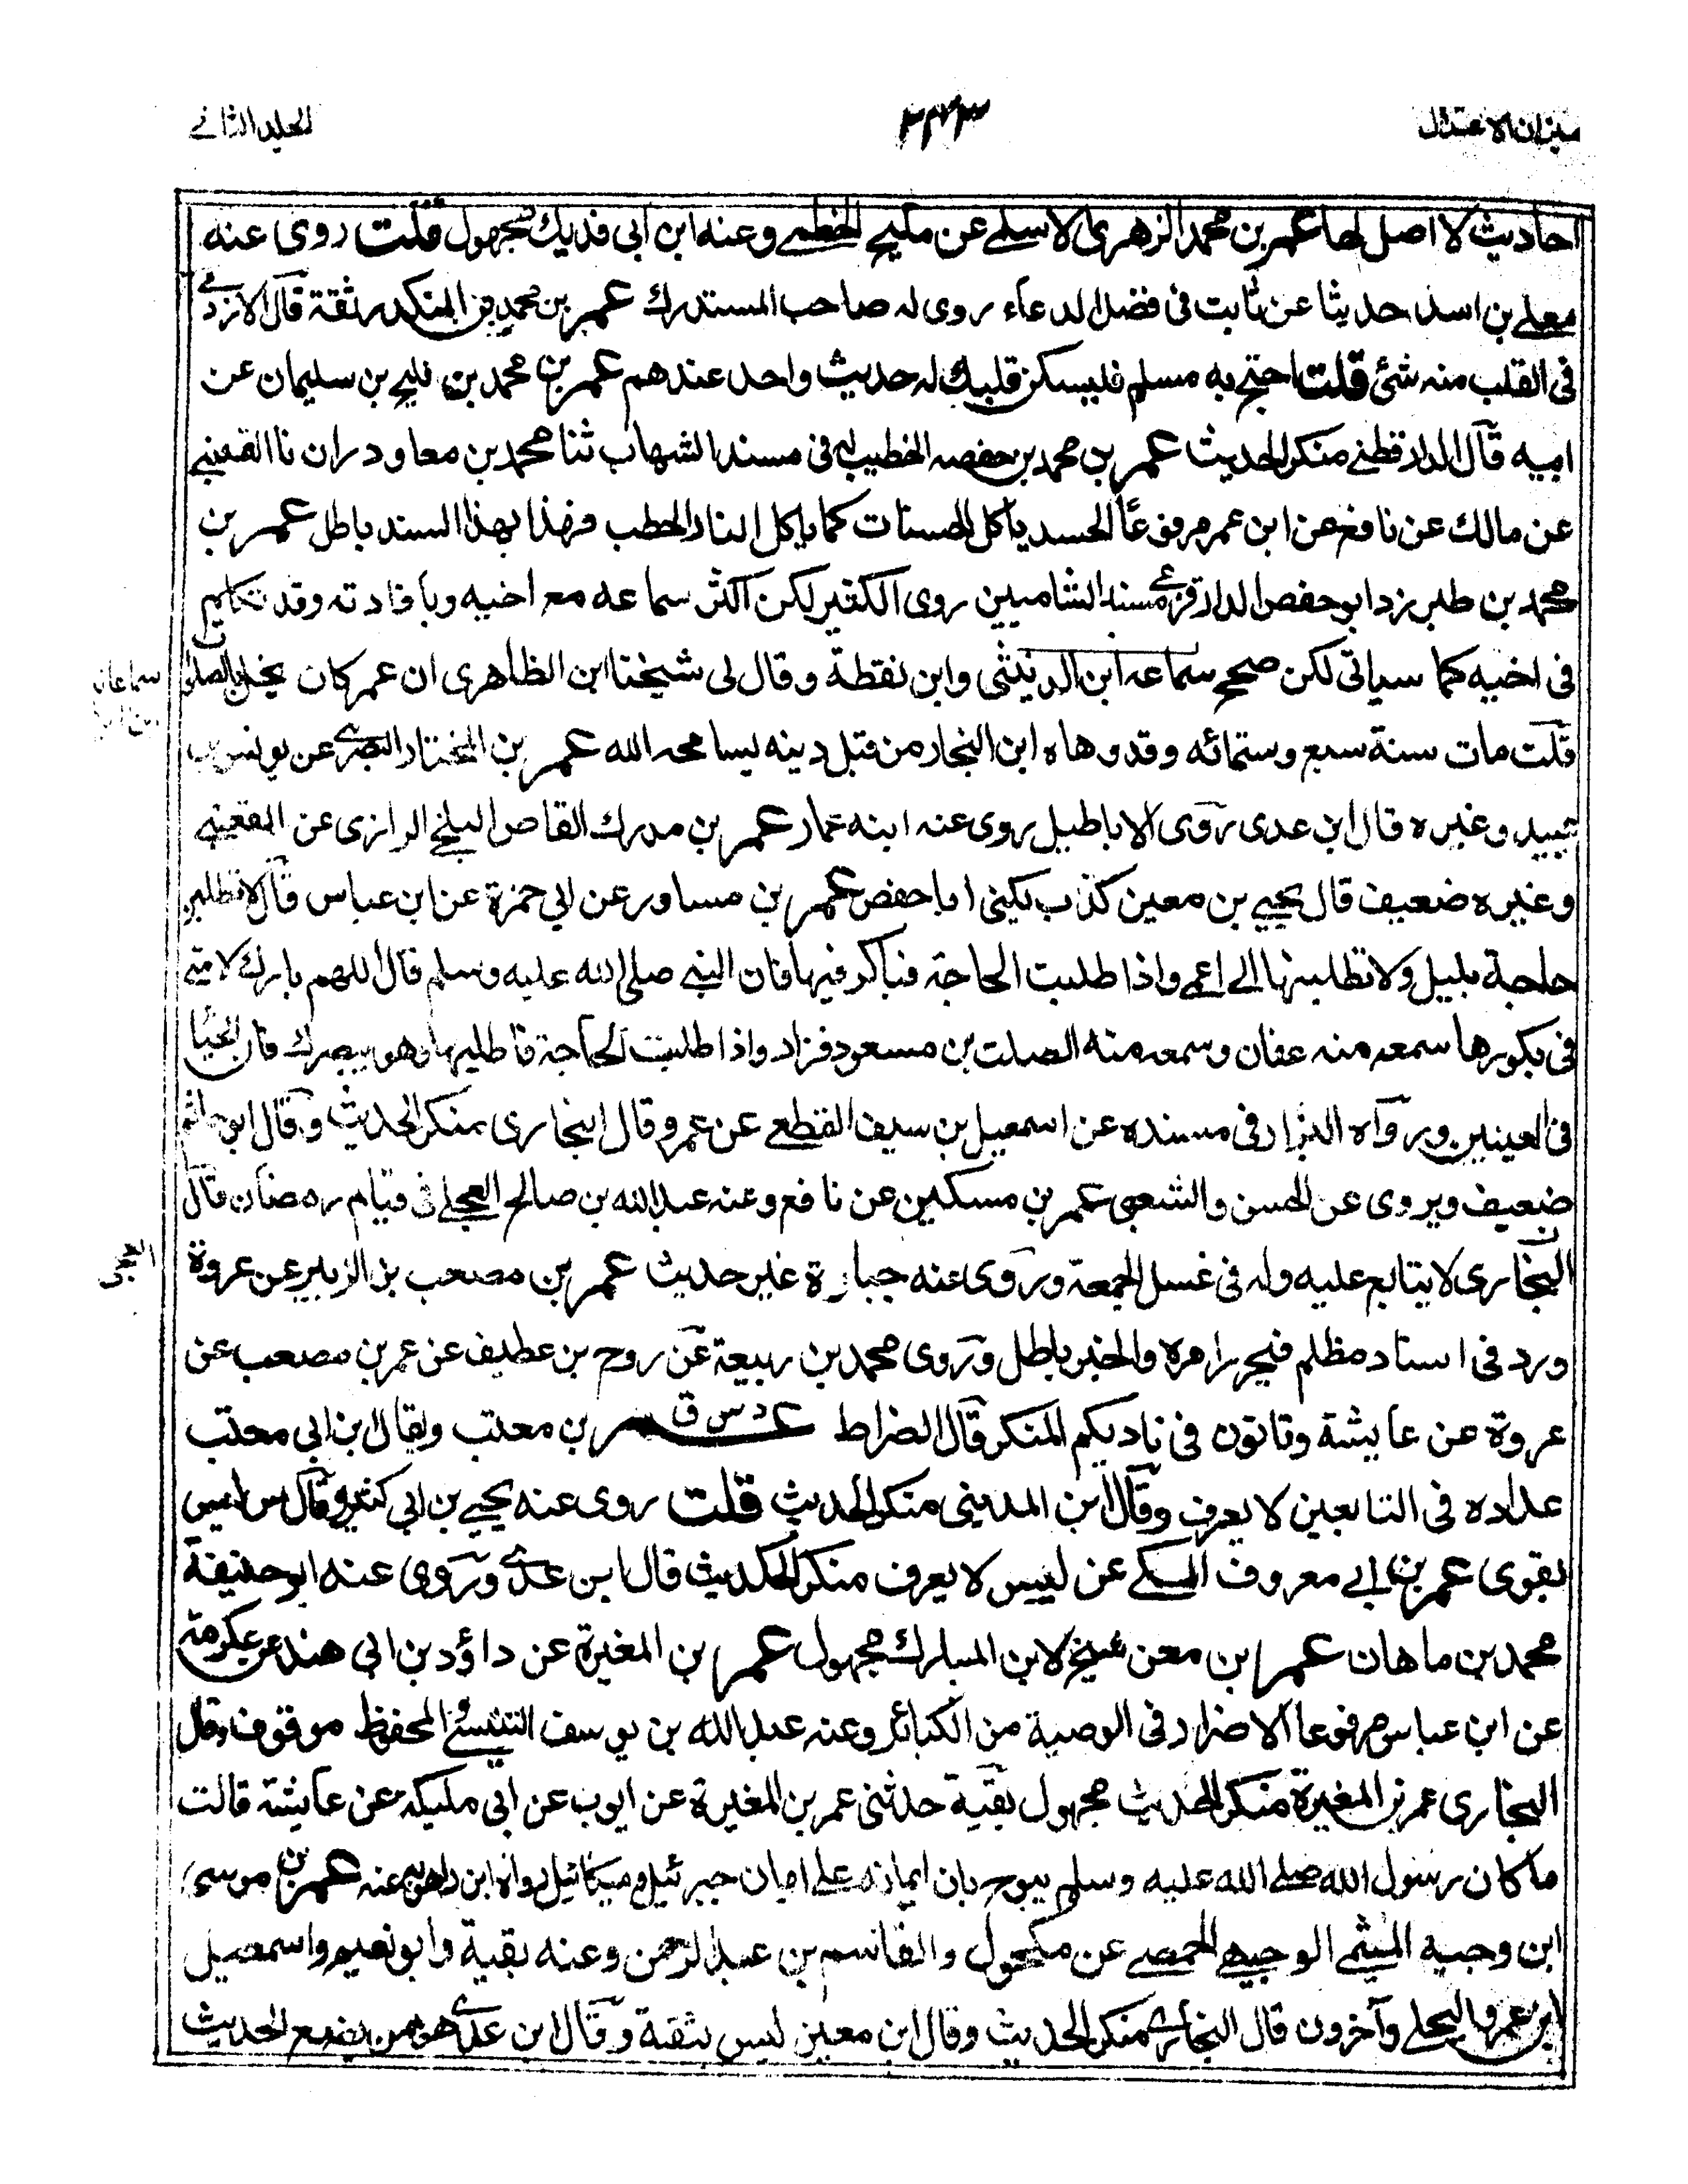 ميزان الاعتدال
٢٧٣
الجلد الثانے
احاديث لا اصل لها عمر بن محمد الزهرى الاسلمے عن مليح الخطمے وعنه ابن ابى فديك مجهول قلت روى عنه
معلے بن اسد حديثا عن ثابت فى فضل الدعاء روى له صاحب المستدرك عمر بن محمد بن المنكدر ثقة قال الازدے
فى القلب منه شئ قلت احتج به مسلم فليسكن قلبك له حديث واحد عندهم عمر بن محمد بن فليح بن سليمان عن
ابيه قال الدارقطنے منكر الحديث عمر بن محمد بن حفصه الخطيب له فى مسند الشهاب ثنا محمد بن معاو دران نا القعنبے
عن مالك عن نافع عن ابن عمر مرفوعًا الحسد ياكل الحسنات كما ياكل النار الحطب فهذا بهذا السند باطل عمر بن
محمد بن طبرزد ابو حفص الدارقزے مسند الشاميين روى الكثير لكن اكثر سماعه مع اخيه وبافادته وقد تكلم
فى اخيه كما سياتى لكن صحح سماعه ابن الدبيثى وابن نقطة وقال لى شيخنا ابن الظاهرى ان عمر كان يخل بالصلوٰت
قلت مات سنة سبع وستمائه وقد وهاه ابن النجار من قبل دينه يسامحه الله عمر بن المختار البصرے عن يونس بن
عبيد وغيره قال ابن عدى روى الاباطيل روى عنه ابنه عمار عمر بن مدرك القاص البلخے الرازى عن القعنبے
وغيره ضعيف قال يحيے بن معين كذاب يكنى ابا حفص عمر بن مساور عن ابى حمزة عن ابن عباس قال لا تطلبن
حاجة بليل ولا تطلبنها الے اعمے واذا طلبت الحاجة فباكر فيها فان النبے صلى الله عليه وسلم قال اللهم بارك لامتے
فى بكورها سمعه منه عفان وسمعه منه الصلت بن مسعود فزاد واذا طلبت الحاجة فاطلبها وهو يبصرك فان الحيا
فى العينين ورواه البزار فى مسنده عن اسمعيل بن سيف القطعے عن عمر وقال البخارى منكر الحديث وقال ابو حاتم
ضعيف ويروى عن الحسن والشعبى عمر بن مسكين عن نافع وعنه عبد الله بن صالح العجلے فى قيام رمضان قال
البخارى لا يتابع عليه وله فى غسل الجمعة وروى عنه جبارة غير حديث عمر بن مصعب بن الزبير عن عروة
ورد فى اسناد مظلم فيحرر امره والخبر باطل وروى محمد بن ربيعة عن روح بن عطيف عن عمر بن مصعب عن
عروة عن عايشة وتاتون فى ناديكم المنكر قال الضراط د س ق عمر بن معتب ويقال ابن ابى معتب
عداده فى التابعين لا يعرف وقال ابن المدينى منكر الحديث قلت روى عنه يحيے بن ابى كثير وقال س ليس
بقوى عمر بن ابے معروف المكے عن ليس لا يعرف منكر الحديث قال ابن عدے وروى عنه ابو حنيفة
محمد بن ماهان عمر بن معن شيخ لابن المبارك مجهول عمر بن المغيرة عن داؤد بن ابى هند عن عكرمة
عن ابن عباس مرفوعا الاضرار فى الوصية من الكبائر وعنه عبد الله بن يوسف التنيسے المحفوظ موقوف وقال
البخارى عمر بن المغيرة منكر الحديث مجهول بقية حدثنى عمر بن المغيرة عن ايوب عن ابى مليكة عن عايشة قالت
ما كان رسول الله صلے الله عليه وسلم يبوح بان ايمانه علے ايمان جبرئيل وميكائيل رواه ابن راهويه عنه عمر بن موسى
ابن وجيه الميثمے الوجيهے الحمصے عن مكحول والقاسم بن عبد الرحمن وعنه بقية وابو نعيم واسمعيل
ابن عمرو البجلے وآخرون قال البخارے منكر الحديث وقال ابن معين ليس بثقة وقال ابن عدے هو ممن يضع الحديث